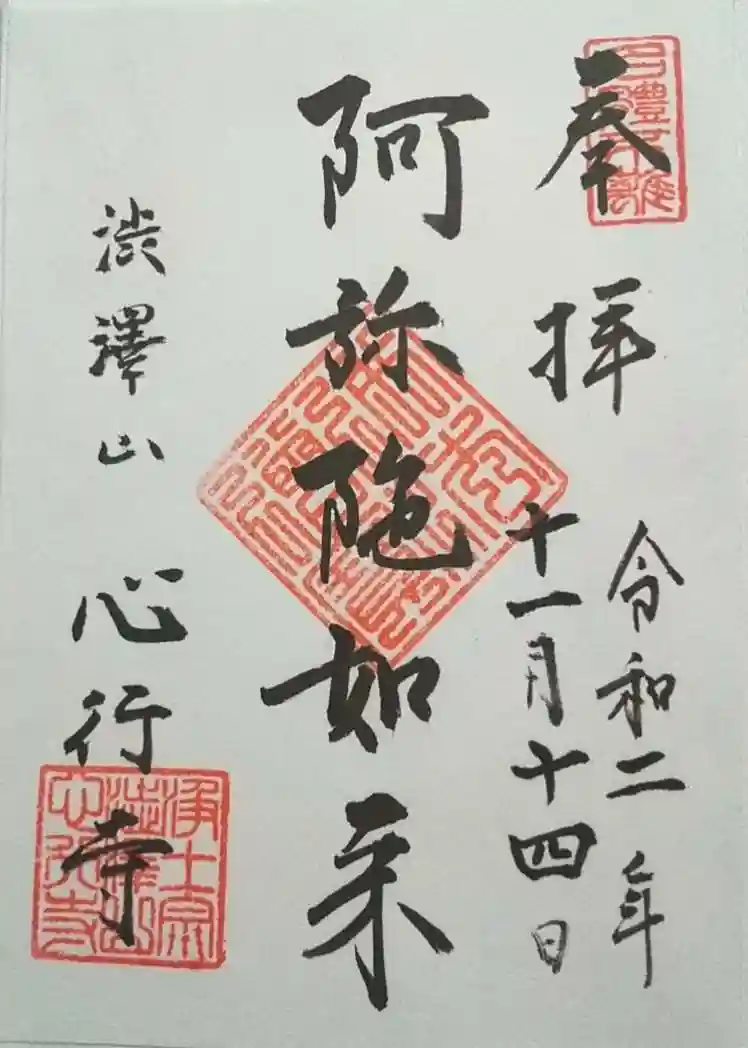 奉拝
令和二年
十一月十四日
阿弥陀如来
渋澤山 心行寺
浄土宗
渋澤山
心行寺